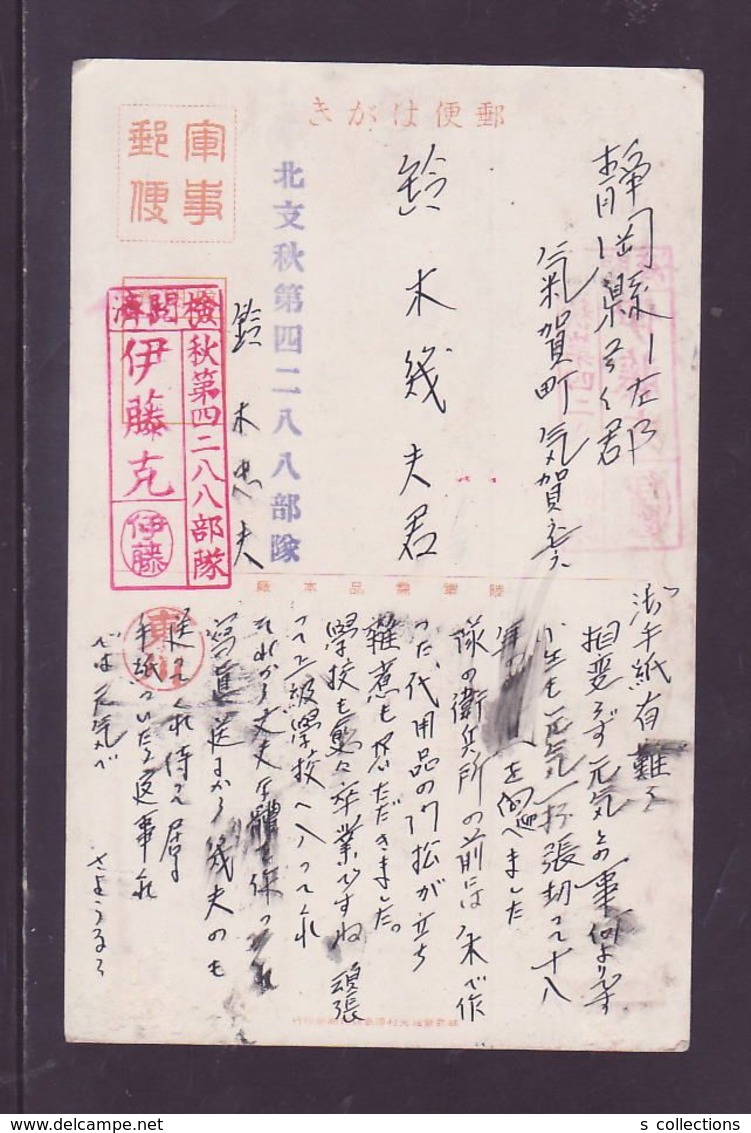 郵便はがき
軍事
郵便
静岡縣引佐郡
氣賀町気賀
鈴木幾夫君
北支秋第四二八八部隊
鈴木忠夫
検閲済
秋第四二八八部隊
伊藤克
伊藤
陸軍需品本廠
御手紙有難う
相変らず元気との事何よりです
小生も元気一杯張切って十八
年の を迎へました
隊の衛兵所の前には木で作
った代用品の門松が立ち
雑煮も いただきました。
學校も愈々卒業ですね 頑張
って上級學校へ入ってくれ
それから丈夫な體を保ってくれ
寫真送るから幾夫のも
送ってくれ待って居る
手紙ついたら返事くれ
では元気で
さようなら
s collections